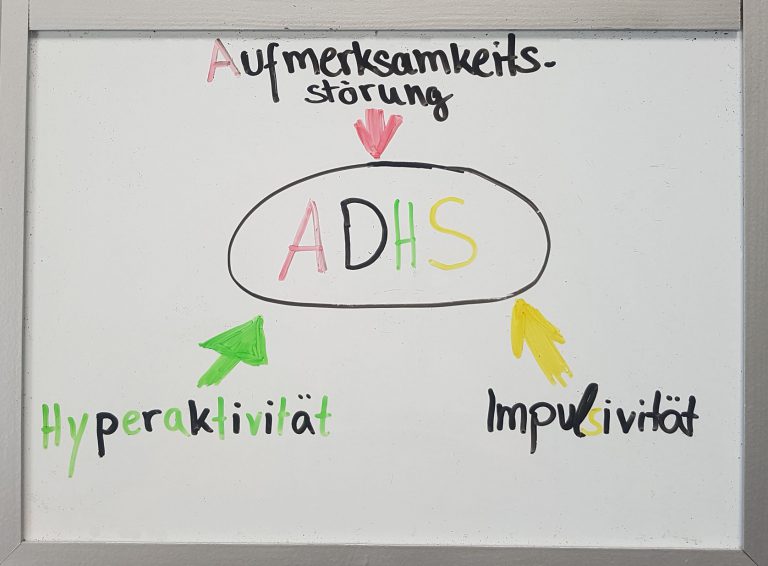 Aufmerksamkeits-
störung
ADHS
Hyperaktivität
Impulsivität